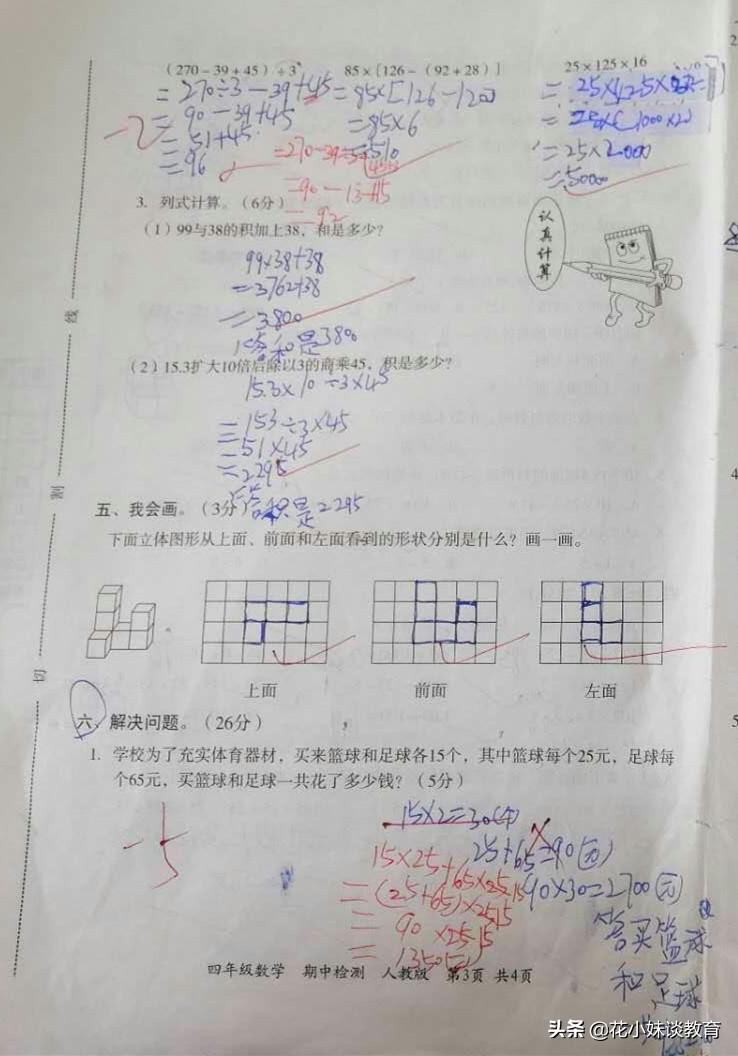 (270-39+45)÷3 85×[126-(92+28)] 25×125×16
=270÷3-39+45 =85×[126-120]
=90-39+45 =85×6
=51+45 =510
=96
-2
=90-13+15
=92
=25×2000
=50000
3. 列式计算。(6分)
(1)99与38的积加上38,和是多少?
99×38+38
=3762+38
=3800
答和是3800
认真计算
(2)15.3扩大10倍后除以3的商乘45,积是多少?
15.3×10÷3×45
=153÷3×45
=51×45
=2295
答积是2295
五、我会画。(3分)
下面立体图形从上面、前面和左面看到的形状分别是什么?画一画。
上面 前面 左面
六、解决问题。(26分)
1. 学校为了充实体育器材,买来篮球和足球各15个,其中篮球每个25元,足球每
个65元,买篮球和足球一共花了多少钱?(5分)
-5
15×2=30(个)
25+65=90(元)
90×30=2700(元)
答买篮球
和足球
15×25+65×15
=(25+65)×15
=90×15
=1350(元)
四年级数学 期中检测 人教版 第3页 共4页
线
剪
切
头条 @花小妹谈教育